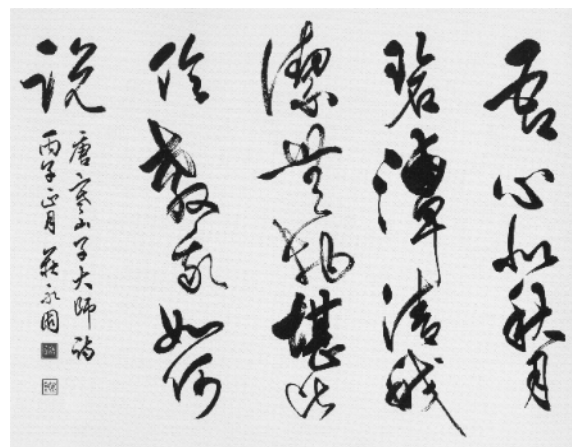 吾心似秋月
碧潭清皎
潔無物堪比
倫教我如何
說
唐寒山子大師詩
丙子正月莊永固